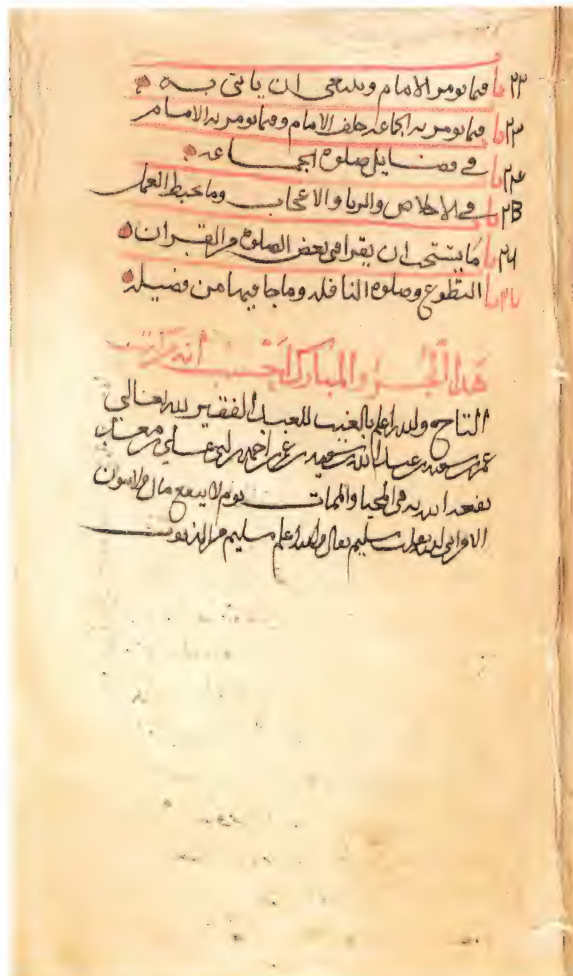 ٢٢ با فيما يومر الامام وينبغي ان ياتي به
٢٣ با فيما يومر به الجماعه خلف الامام وفيما يومر به الامام
٢٤ با في فضايل صلوة الجماعه
٢٥ با في الاخلاص والريا والاعجاب وما يحبط العمل
٢٦ با ما يستحب ان يقرا في بعض الصلوة من القران
٢٧ با التطوع وصلوة النافله وما جا فيها من فضيله
هذا الجزو المبارك احسب انه من كتاب
التاج والله اعلم بالغيب للعبد الفقير لله تعالى
عمر بن سعيد بن عبد الله بن سعيد بن عمر بن احمد بن ابي علي بن معد
نفعه الله به في المحيا والممات يوم لا ينفع مال ولا بنون
الا من اتى الله بقلب سليم يقال والله اعلم سليم من الذنوب